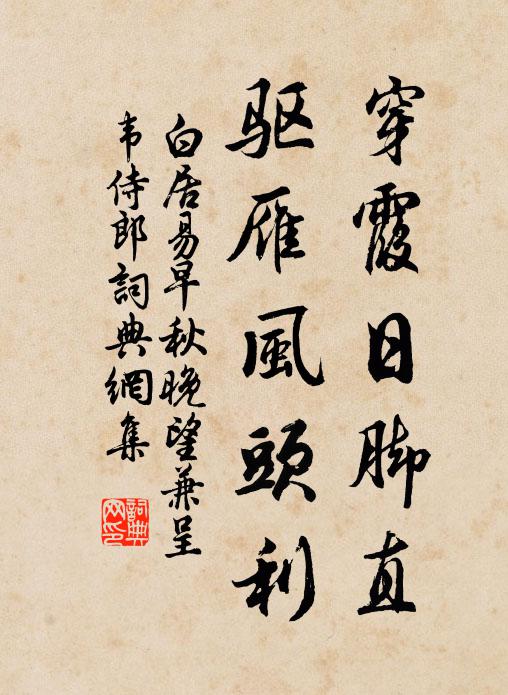 穿霞日脚直
驱雁風頭利
白居易早秋晚望兼呈
韦侍郎詞典網集
詞典
网印